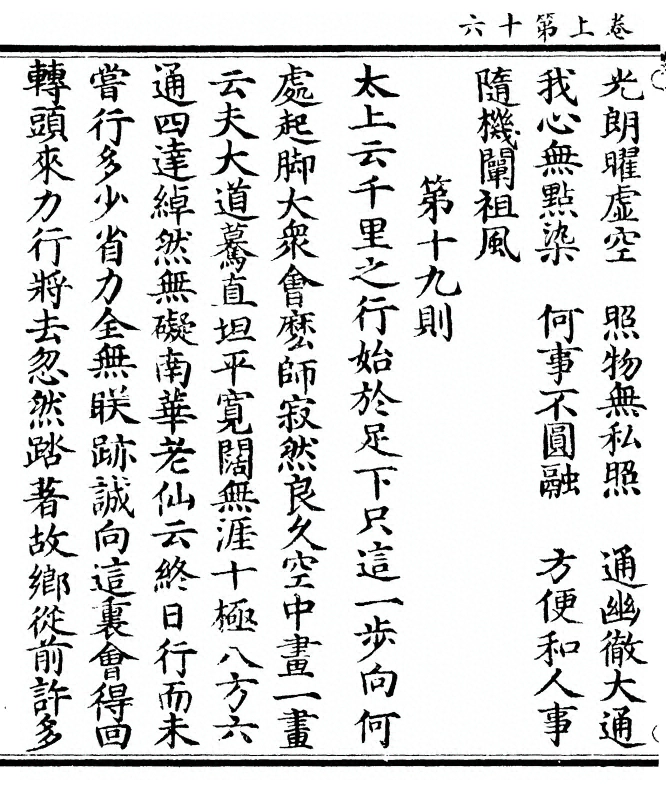 卷上第十六
光朗曜虛空　照物無私照　通幽徹大通
我心無點染　何事不圓融　方便和人事
隨機闡祖風
第十九則
太上云千里之行始於足下只這一步向何
處起脚大衆會麽師寂然良久空中畫一畫
云夫大道驀直坦平寬闊無涯十極八方六
通四達綽然無礙南華老仙云終日行而未
嘗行多少省力全無眹跡誠向這裏會得回
轉頭來力行將去忽然踏著故鄉從前許多